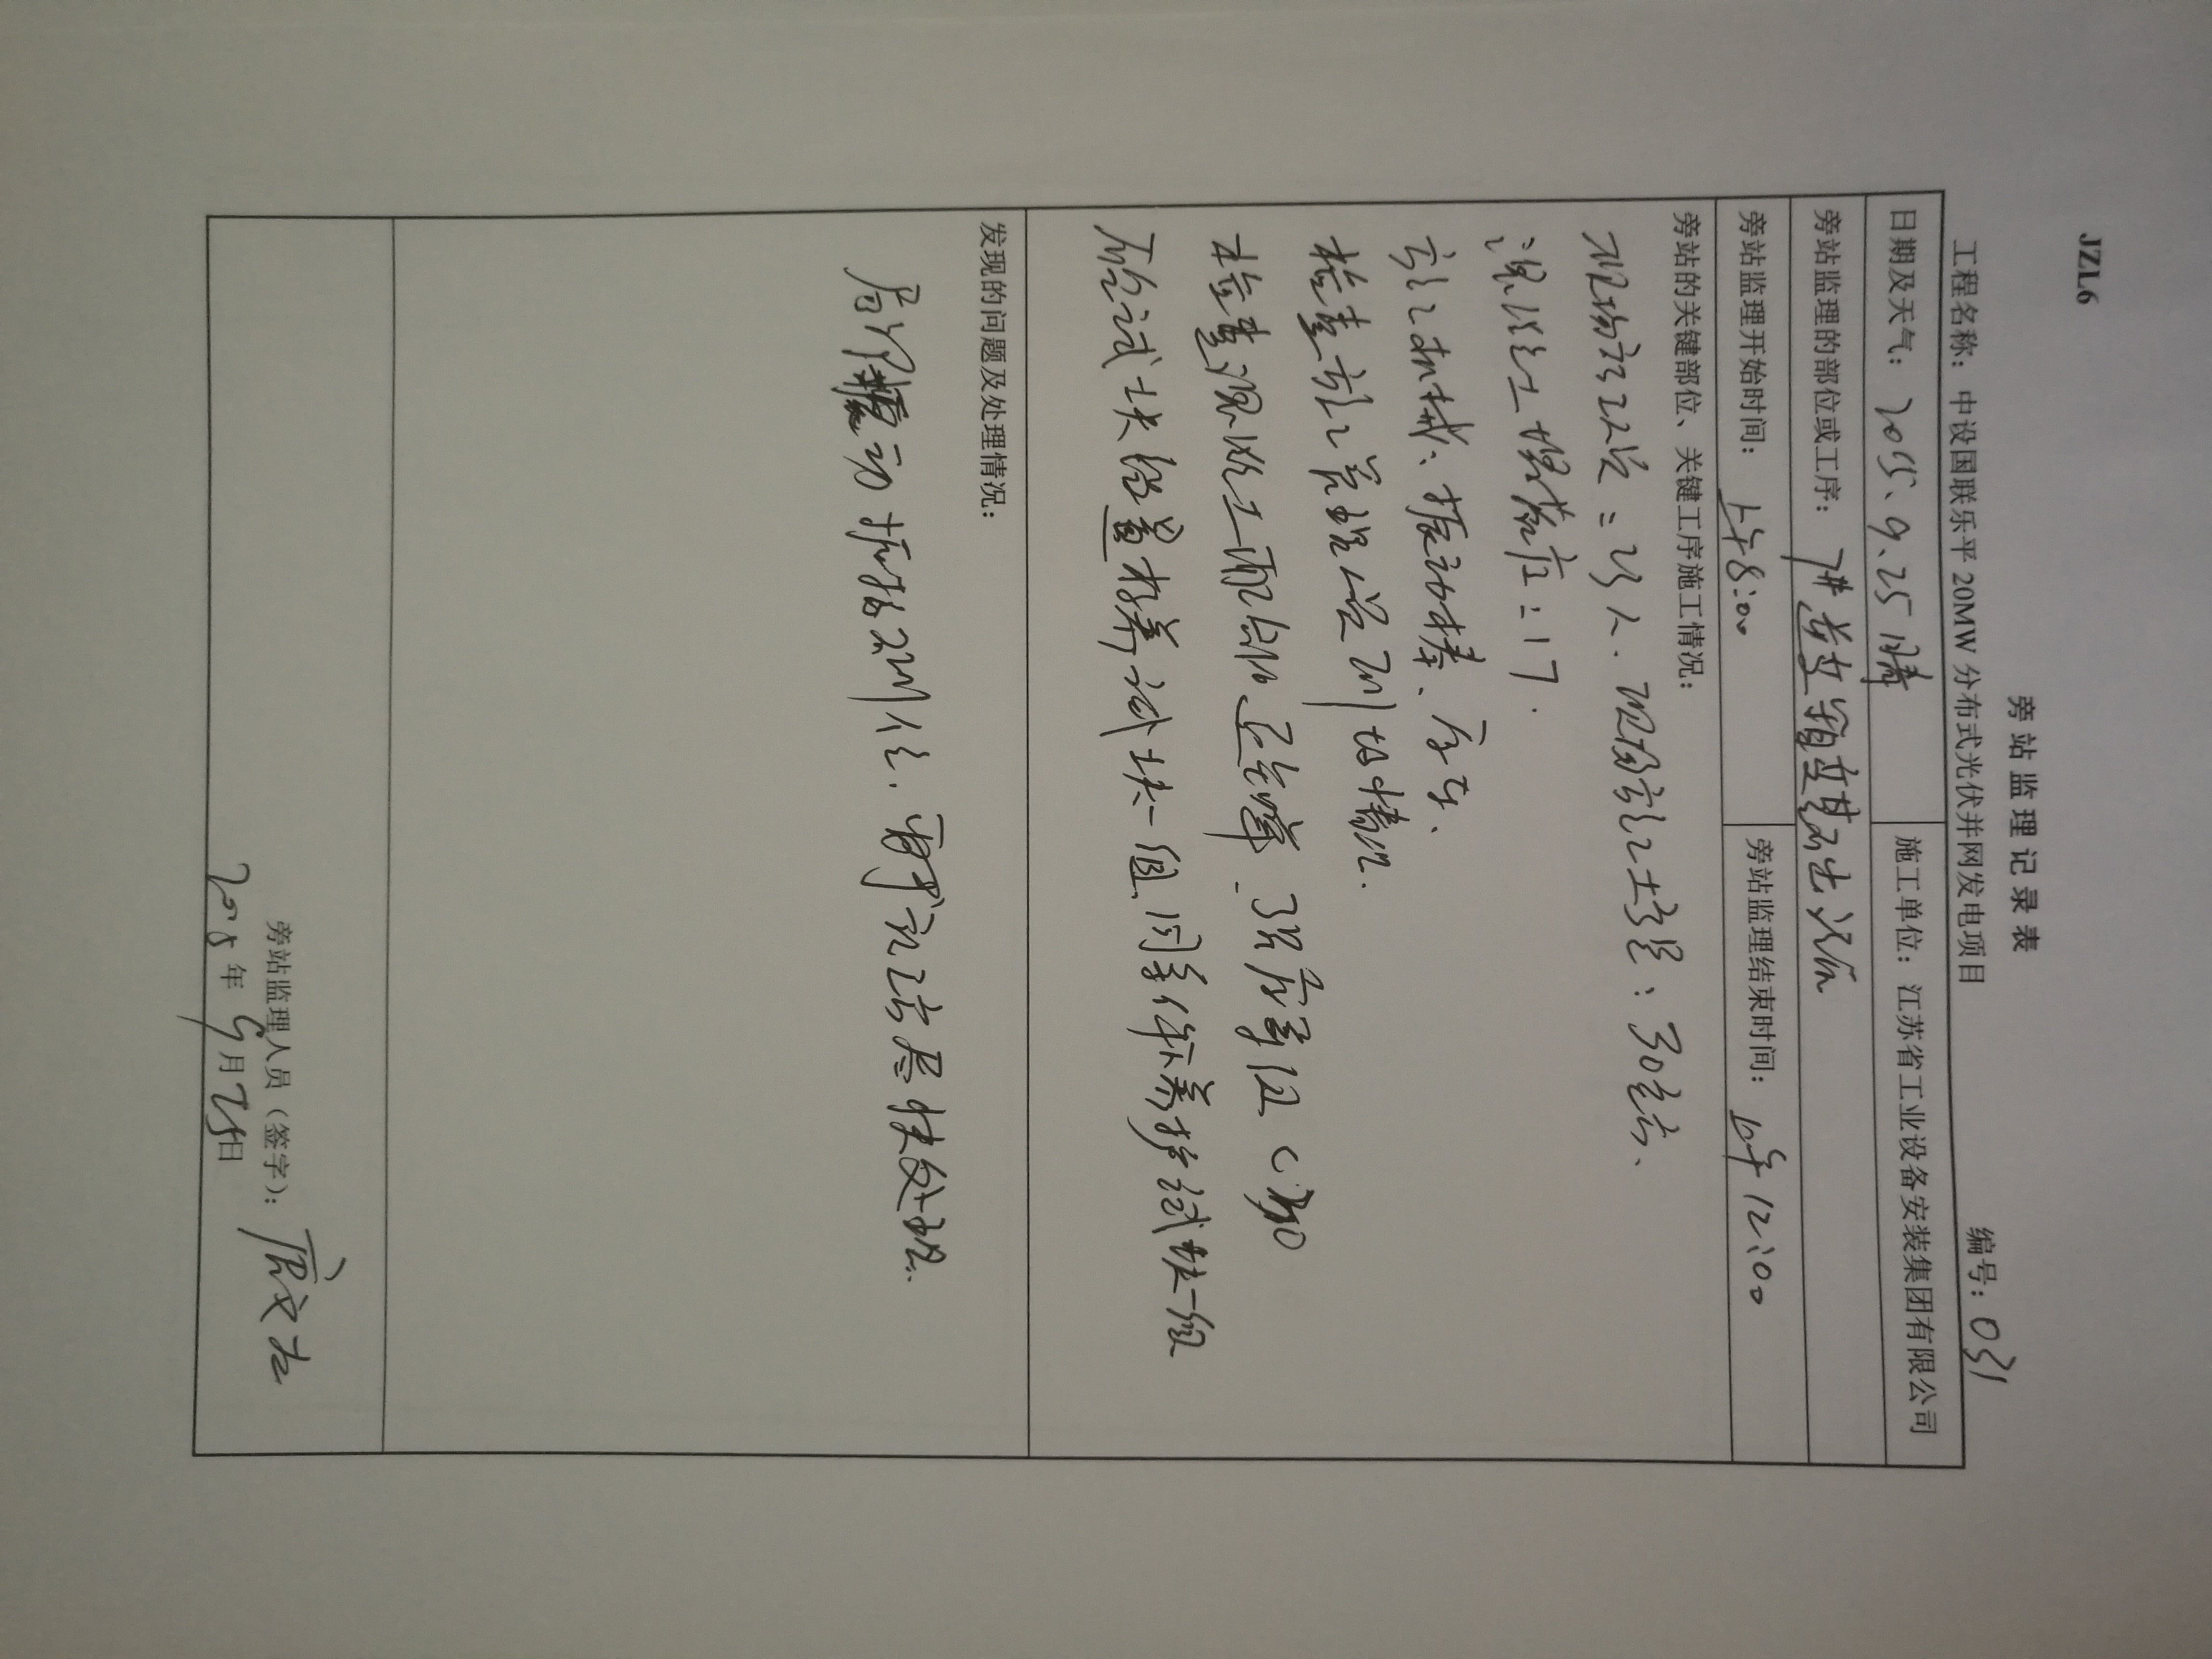 JZL6
旁站监理记录表
工程名称：中设国联乐平 20MW 分布式光伏并网发电项目 编号：031
日期及天气：2015、9、25 晴 施工单位：江苏省工业设备安装集团有限公司
旁站监理的部位或工序：7#逆变箱变基础浇筑
旁站监理开始时间：上午8:00 旁站监理结束时间：上午12:00
旁站的关键部位、关键工序施工情况：
现场施工人员：23人、现场施工土方量：30立方、
混凝土塌落度：17.
施工机械、振动棒、
检查施工管理人员到场情况.
检查混凝土配合比通知单、强度等级 C30
检查试块留置标养试块一组、同条件养护试块一组
发现的问题及处理情况：
尽快处理.
旁站监理人员（签字）：
2015年9月25日